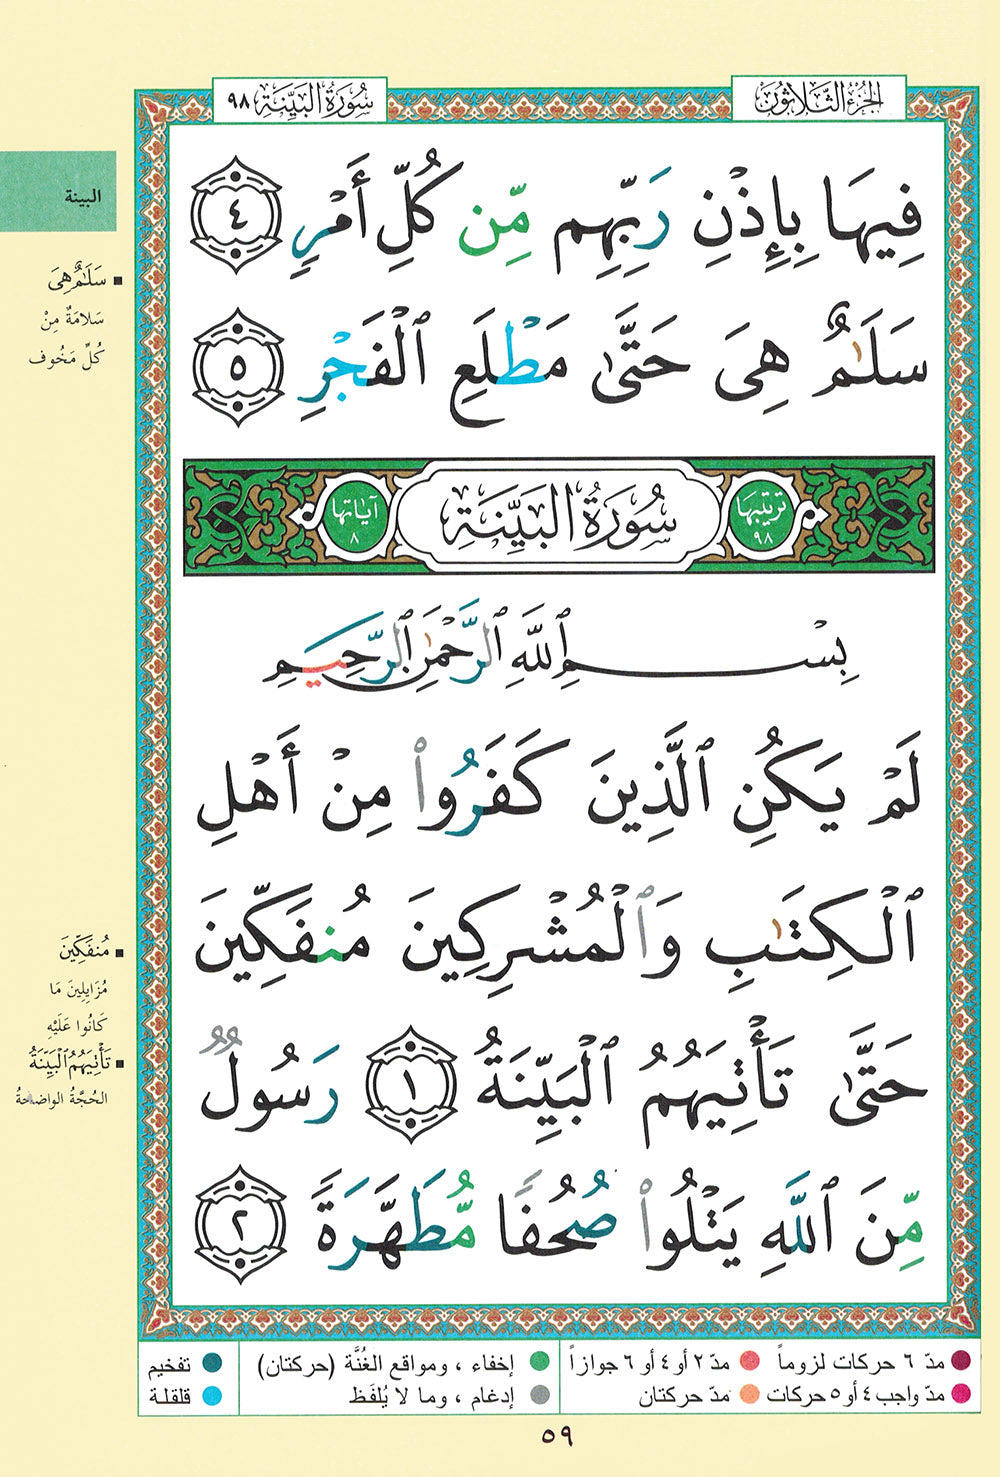 سُورَةُ البَيِّنَةِ ٩٨
الجُزْءُ الثَّلَاثُونَ
فِيهَا بِإِذْنِ رَبِّهِم مِّن كُلِّ أَمْرٍ ٤
سَلَـٰمٌ هِىَ حَتَّىٰ مَطْلَعِ ٱلْفَجْرِ ٥
ترتيبها ٩٨ سُورَةُ البَيِّنَةِ آياتها ٨
بِسْمِ ٱللَّهِ ٱلرَّحْمَـٰنِ ٱلرَّحِيمِ
لَمْ يَكُنِ ٱلَّذِينَ كَفَرُوا۟ مِنْ أَهْلِ
ٱلْكِتَـٰبِ وَٱلْمُشْرِكِينَ مُنفَكِّينَ
حَتَّىٰ تَأْتِيَهُمُ ٱلْبَيِّنَةُ ١ رَسُولٌ
مِّنَ ٱللَّهِ يَتْلُوا۟ صُحُفًا مُّطَهَّرَةً ٢
البينة
سَلَـٰمٌ هِىَ
سَلامَةٌ مِنْ
كُلِّ مَخُوف
مُنفَكِّينَ
مُزَايِلِينَ مَا
كَانُوا عَلَيْهِ
تَأْتِيَهُمُ ٱلْبَيِّنَةُ
الحُجَّةُ الواضِحَةُ
مدّ ٦ حركات لزوماً مدّ ٢ أو ٤ أو ٦ جوازاً إخفاء ، ومواقع الغُنَّة (حركتان) تفخيم
مدّ واجب ٤ أو ٥ حركات مدّ حركتان إدغام ، وما لا يُلفَظ قلقلة
٥٩